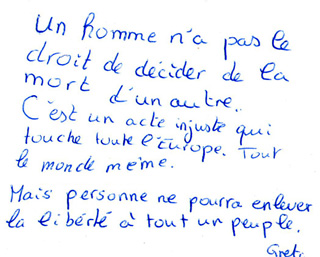 Un homme n'a pas le
droit de décider de la
mort d'un autre.
C'est un acte injuste qui
touche toute l'Europe. Tout
le monde même.
Mais personne ne pourra enlever
la liberté à tout un peuple.
Greti